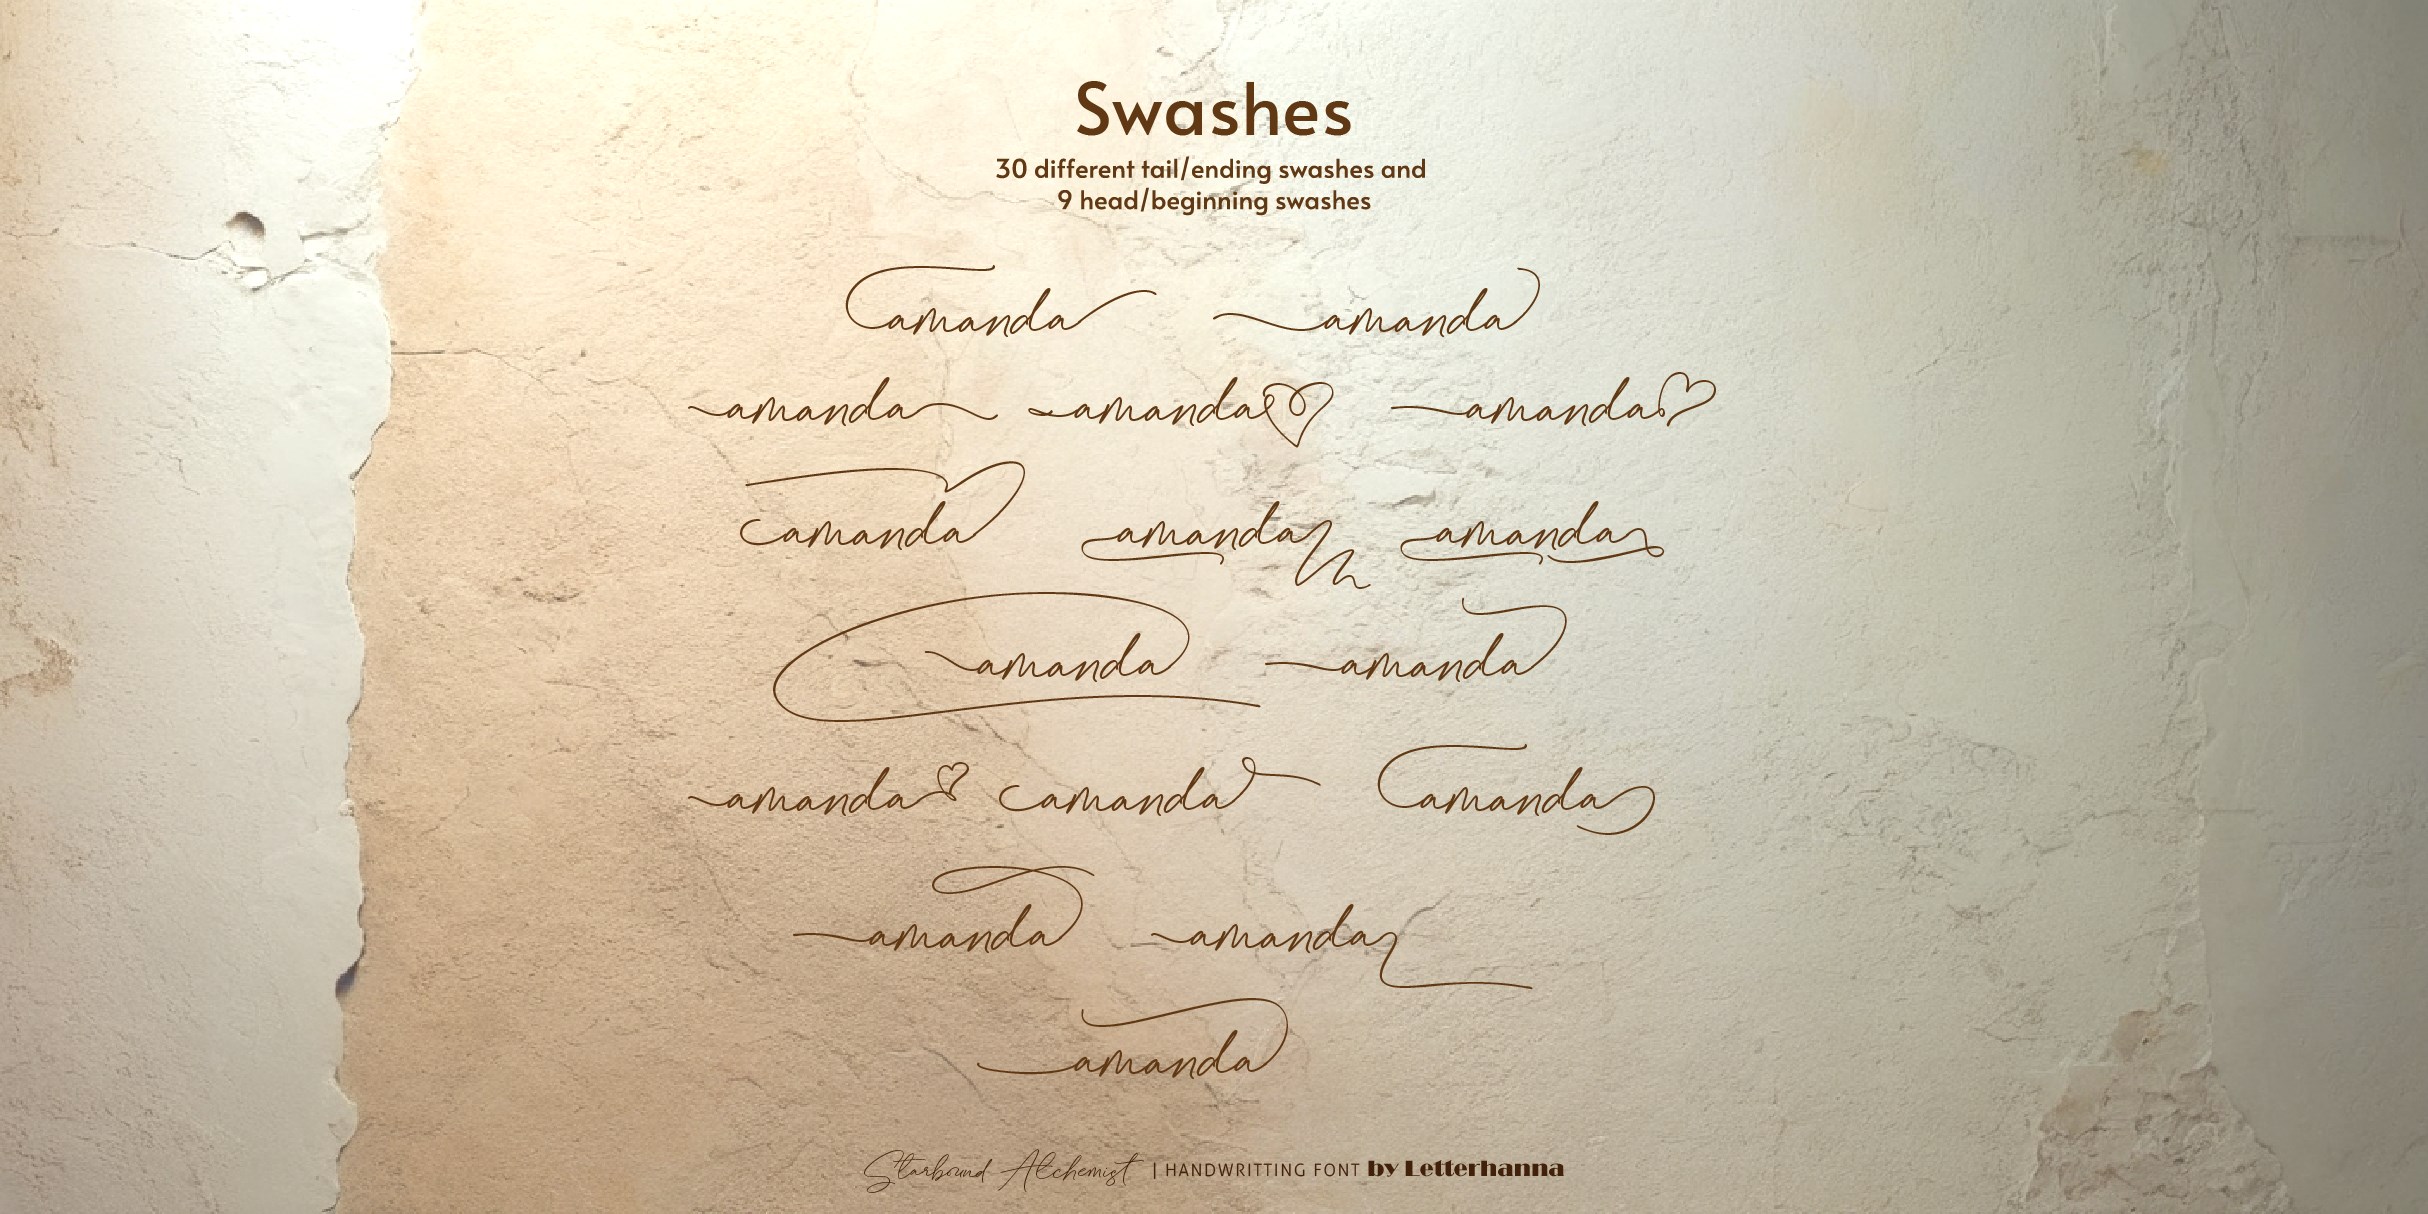 Swashes
30 different tail/ending swashes and
9 head/beginning swashes
amanda amanda
amanda amanda amanda
amanda amanda amanda
amanda amanda
amanda amanda amanda
amanda amanda
amanda
Starbound Alchemist | HANDWRITTING FONT by Letterhanna